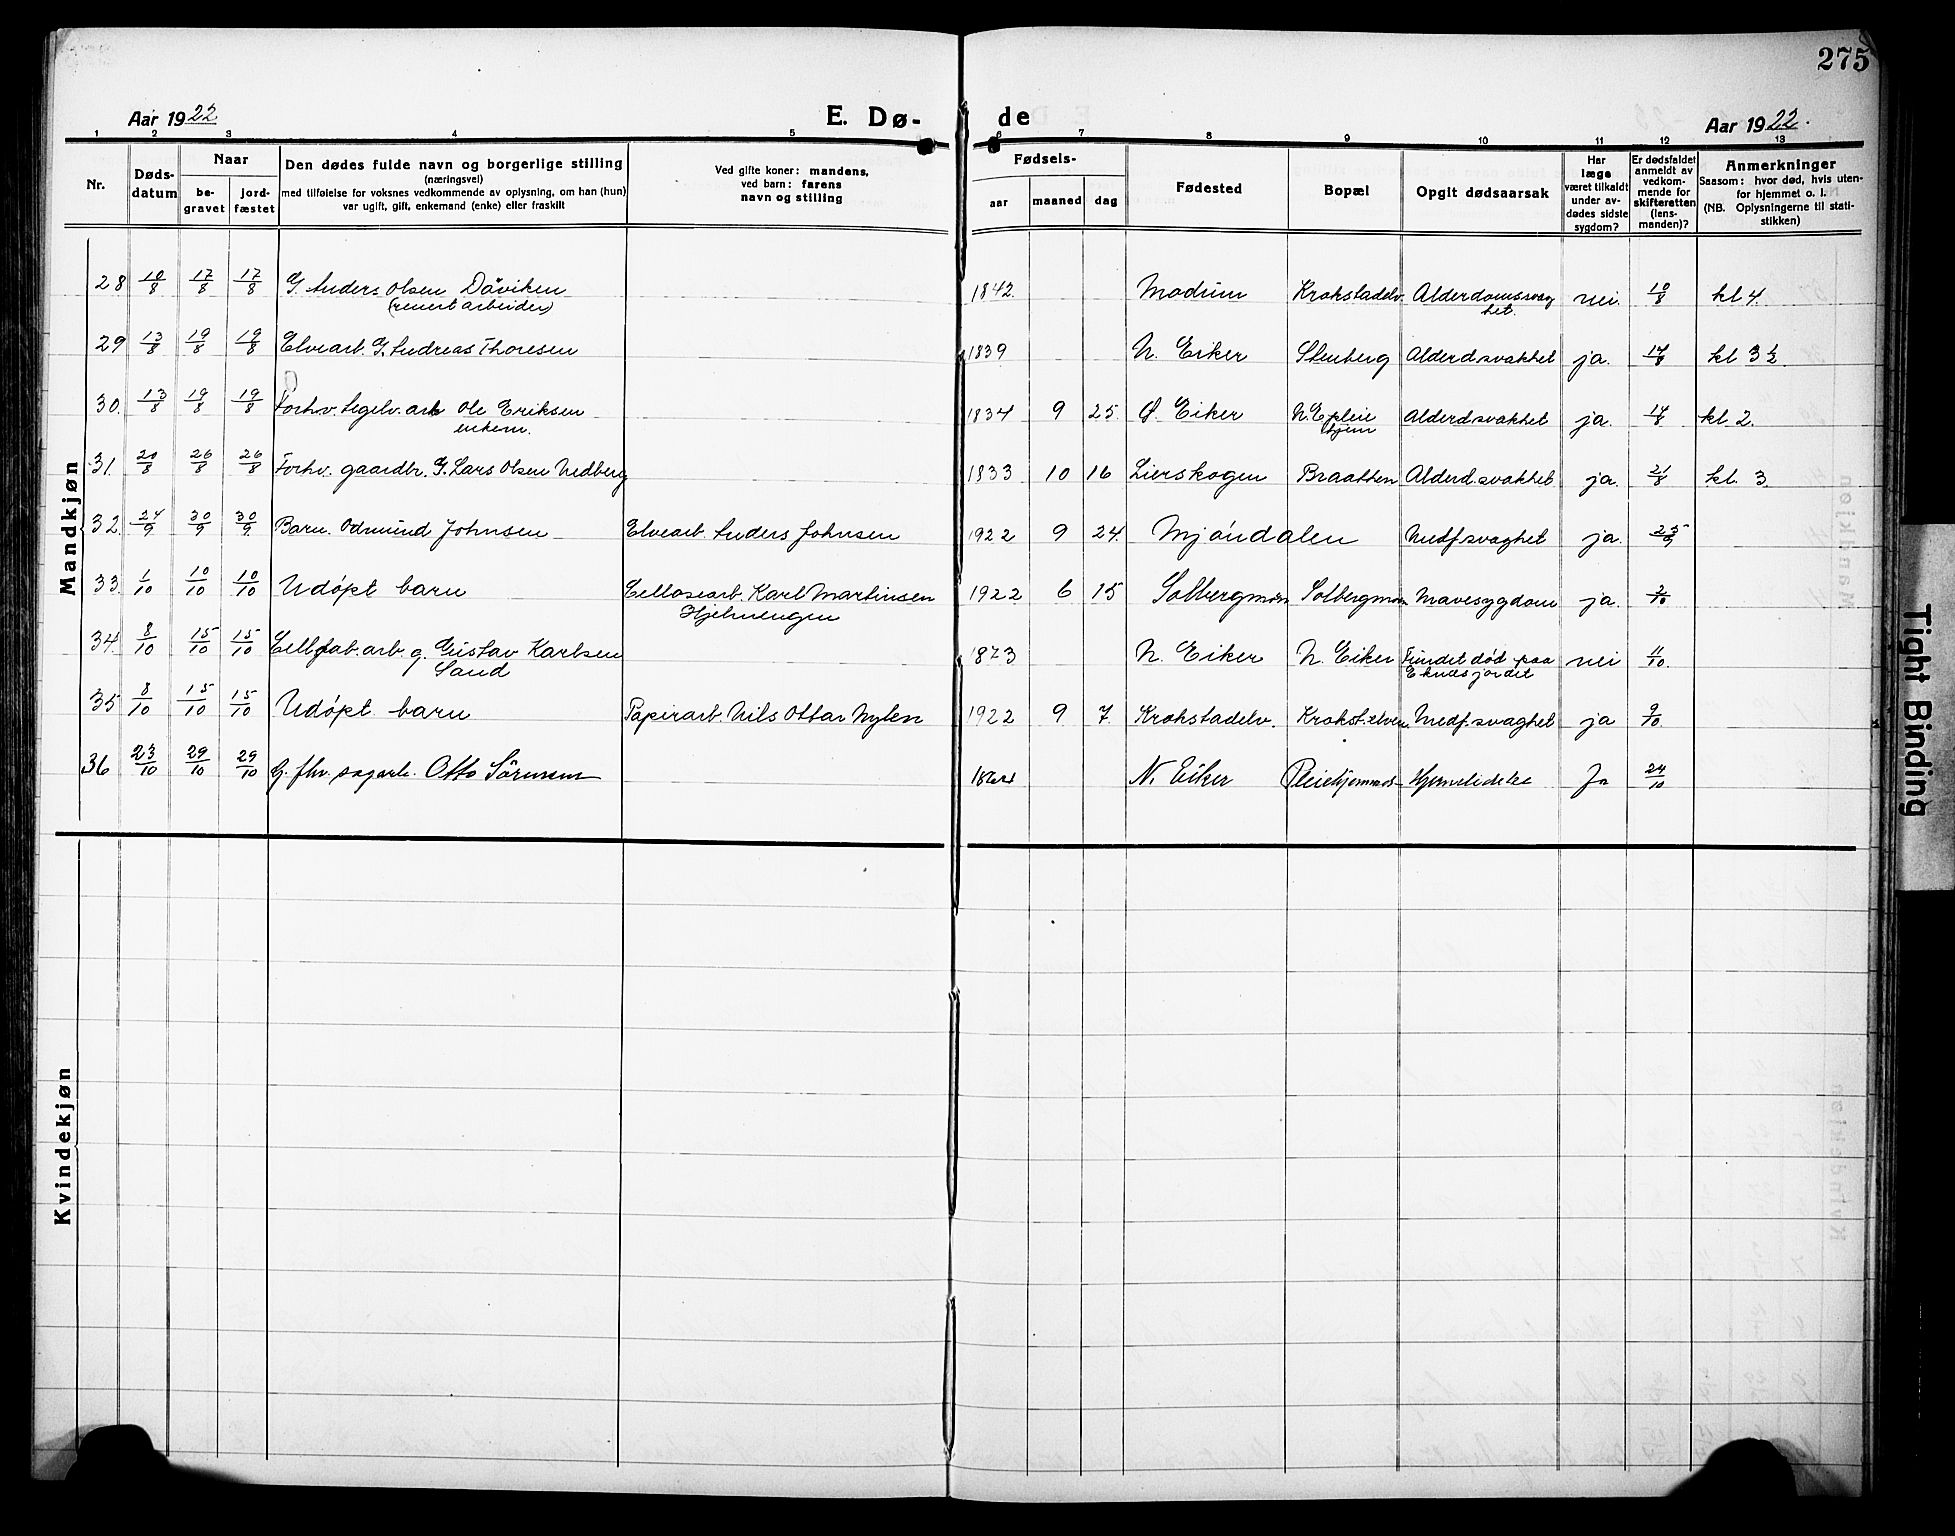 275
Aar 1922 E. Dø- de Aar 1922.
1 2 3 4 5 6 7 8 9 10 11 12 13
Nr. Døds-datum Naar be-gravet jord-fæstet Den dødes fulde navn og borgerlige stilling (næringsvei) med tilføielse for voksnes vedkommende av oplysning, om han (hun) var ugift, gift, enkemand (enke) eller fraskilt Ved gifte koner: mandens, ved barn: farens navn og stilling Fødsels- aar maaned dag Fødested Bopæl Opgit dødsaarsak Har læge været tilkaldt under av-dødes sidste sygdom? Er dødsfaldet anmeldt av vedkom-mende for skifteretten (lens-manden)? Anmerkninger Saasom: hvor død, hvis uten-for hjemmet o. l. (NB. Oplysningerne til stati-stikken)
Mandkjøn
28 10/8 17/8 17/8 G. Anders Olsen Dåviken 1842. Modum Krokstadelv. Alderdomssvag nei. 10/8 kl 4.
(reuert arbeider) het.
29 13/8 19/8 19/8 Elvearb. G. Andreas Thoresen 1839 N. Eiker Stenberg Alderd.svakhet ja. 14/8 kl 3 1/2
30. 13/8 19/8 19/8 Forhv. Segelv. arb Ole Eriksen 1834 9 25. Ø. Eiker N. E pleie Alderd.svakhet ja. 14/8 kl 2.
enkem. hjem
31. 20/8 26/8 26/8 Forhv. gaardbr. G. Lars Olsen Vedberg 1833 10 16 Lierskogen Braatten Alderd.svakhet ja. 21/8 kl. 3
32. 24/9 30/9 30/9. Barn. Odmund Johnsen Elvearb. Anders Johnsen 1922 9 24. Mjöndalen Medf.svaghet ja. 25/9
33. 1/10 10/10 10/10 Udøpt barn Cellosearb. Karl Martinsen 1922 6 15 Solbergmoen Solbergmoen Mavesygdom ja. 2/10
Hjelmengen
34. 8/10 15/10 15/10 Cell.fab.arb. g. Gustav Karlsen 1873 N. Eiker N. Eiker Fundet død paa nei 11/10.
Sand Eknesjordet
35 8/10 15/10 15/10 Udøpt barn Papirarb. Nils Ottar Nylen 1922 9 7. Krokstadelv. Krokst.elven Medf.svaghet ja 9/10.
36 23/10 29/10 29/10 G. fhv. sagarb. Otto Sörensen N. Eiker Pleiehjemmet Hjertelidelse Ja 24/10
Kvindekjøn
Tight Binding